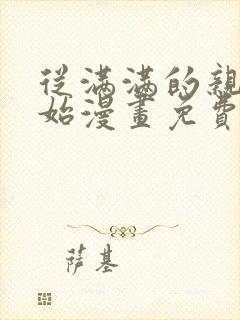 從滿滿的親
始漫畫免費
萨基